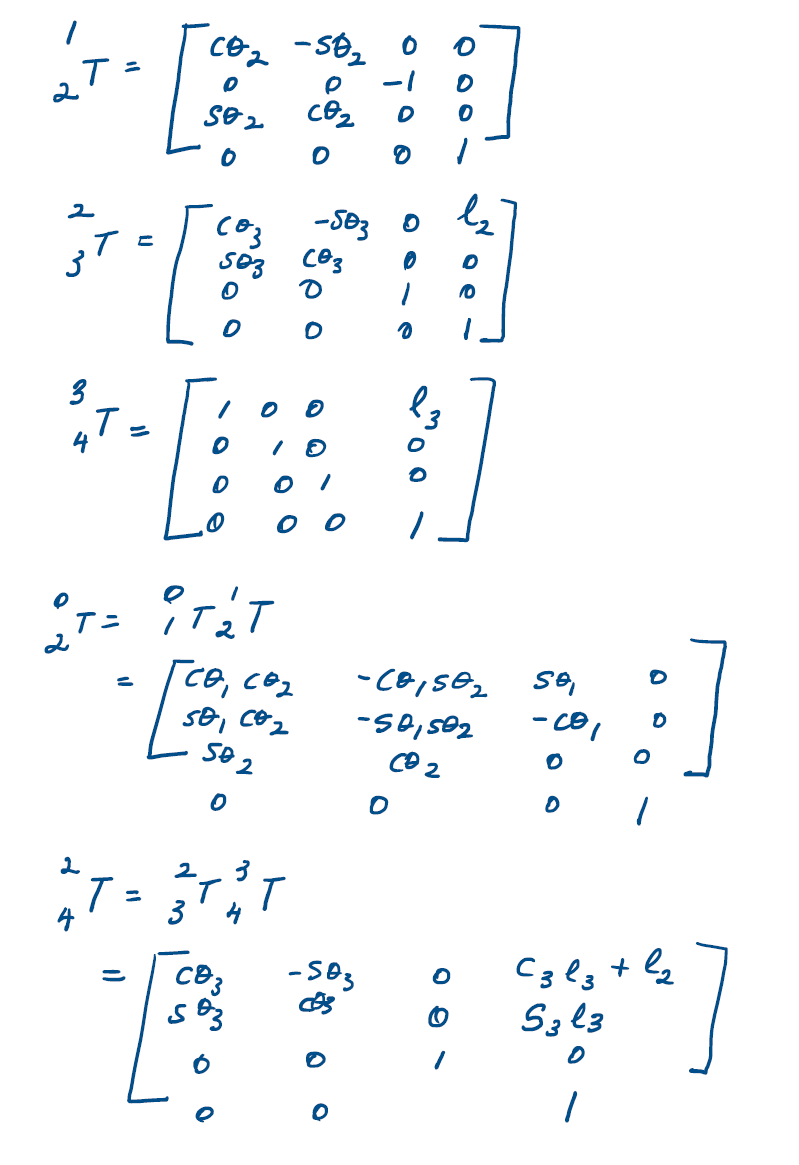 ¹₂T = [ cθ₂ -sθ₂ 0 0
0 0 -1 0
sθ₂ cθ₂ 0 0
0 0 0 1 ]
²₃T = [ cθ₃ -sθ₃ 0 l₂
sθ₃ cθ₃ 0 0
0 0 1 0
0 0 0 1 ]
³₄T = [ 1 0 0 l₃
0 1 0 0
0 0 1 0
0 0 0 1 ]
⁰₂T = ⁰₁T ¹₂T
= [ cθ₁ cθ₂ -cθ₁ sθ₂ sθ₁ 0
sθ₁ cθ₂ -sθ₁ sθ₂ -cθ₁ 0
sθ₂ cθ₂ 0 0
0 0 0 1 ]
²₄T = ²₃T ³₄T
= [ cθ₃ -sθ₃ 0 c₃ l₃ + l₂
sθ₃ cθ₃ 0 s₃ l₃
0 0 1 0
0 0 1 ]